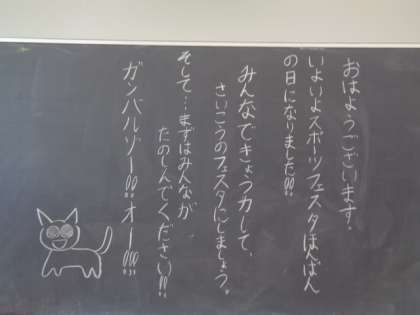 おはようございます。
いよいよスポーツフェスタほんばん
の日になりました!!
みんなできょう力して、
さいこうのフェスタにしましょう。
そして…まずはみんなが
たのしんでください!!
ガンバルゾー!!オー!!!